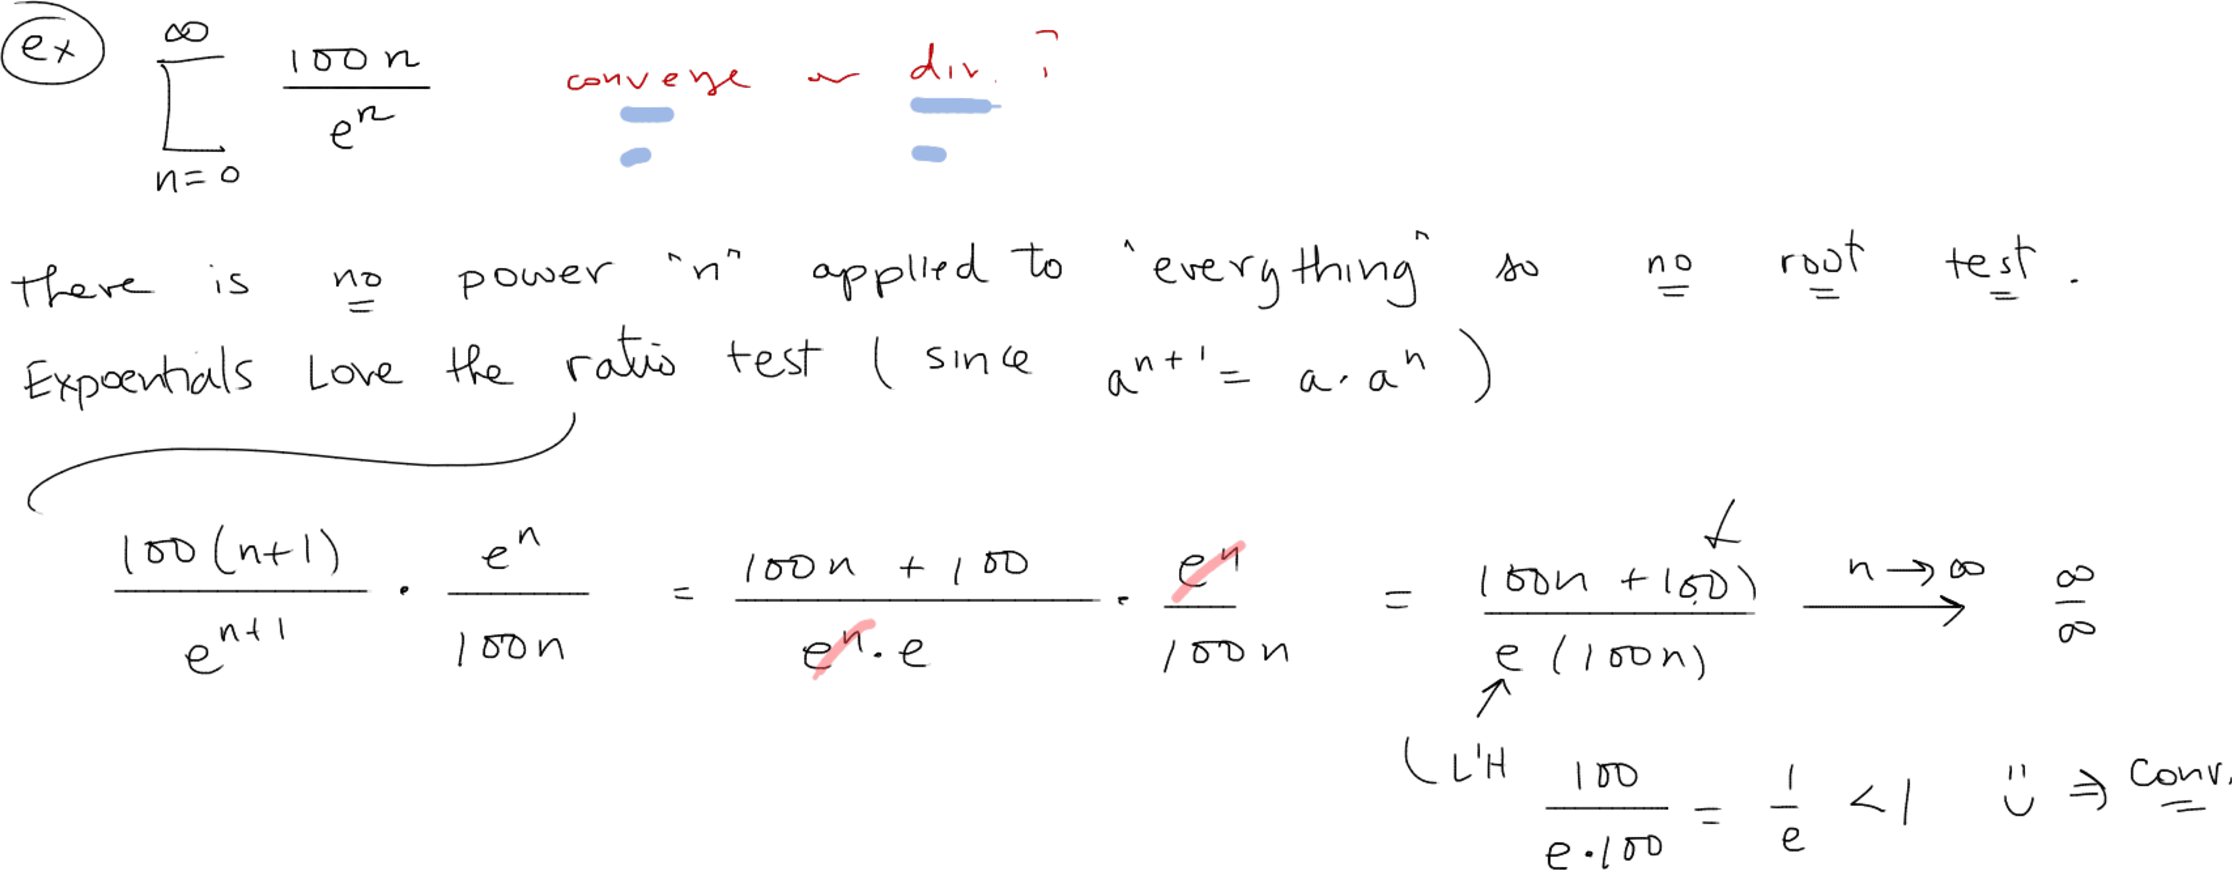 ex ∑_{n=0}^{∞} 100n / e^n converge or div. ?
There is no power "n" applied to "everything" so no root test.
Expoentials Love the ratio test (since a^{n+1} = a · a^n)
100(n+1) / e^{n+1} · e^n / 100n = 100n + 100 / e^n · e · e^n / 100n = 100n + 100) / e (100n) n → ∞ ∞ / ∞
(L'H 100 / e·100 = 1 / e < 1 ⇒ Conv.